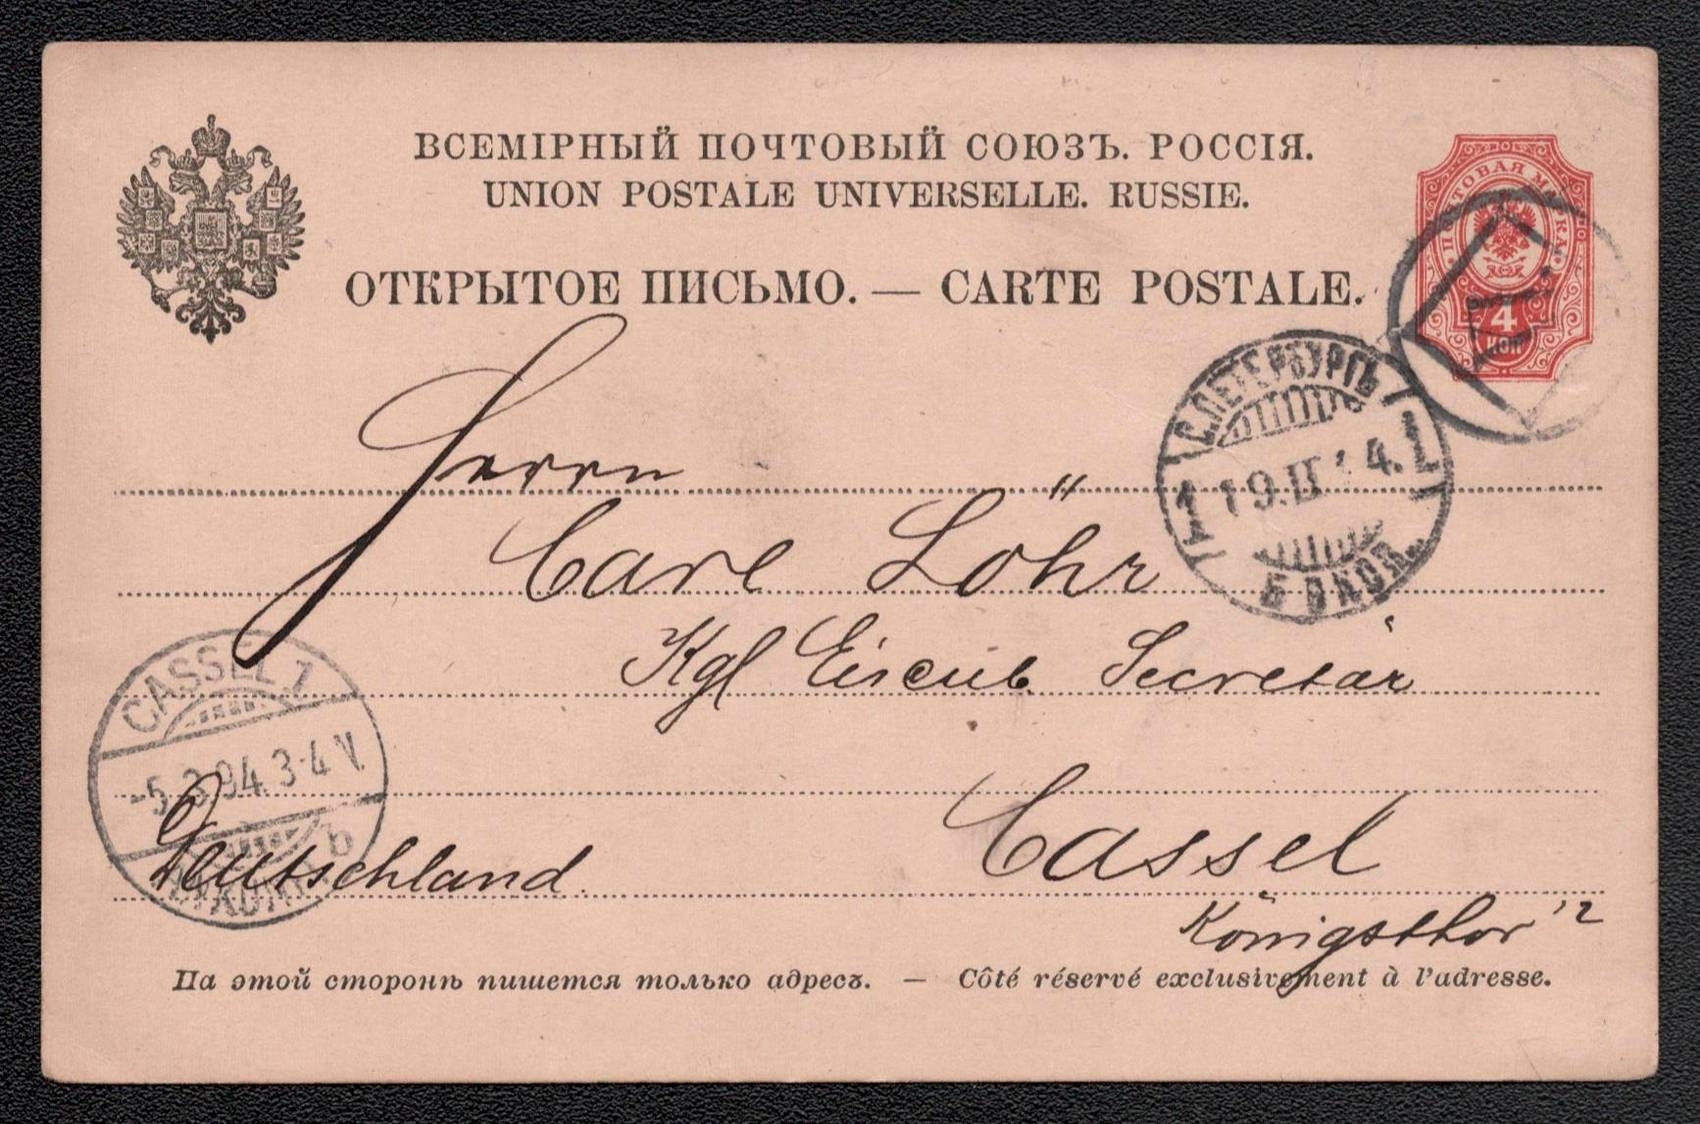 ВСЕМІРНЫЙ ПОЧТОВЫЙ СОЮЗЪ. РОССІЯ.
UNION POSTALE UNIVERSELLE. RUSSIE.
ОТКРЫТОЕ ПИСЬМО. — CARTE POSTALE.
ПОЧТОВАЯ МАРКА
4
КОП
С.ПЕТЕРБУРГЪ
1 19.II 4. 1
Herrn
Carl Löhr
Kgl Secretär
CASSEL 1
-5.3.94. 3-4 V.
Cassel
Deutschland.
Königsthor
На этой сторонѣ пишется только адресъ. — Côté réservé exclusivement à l'adresse.